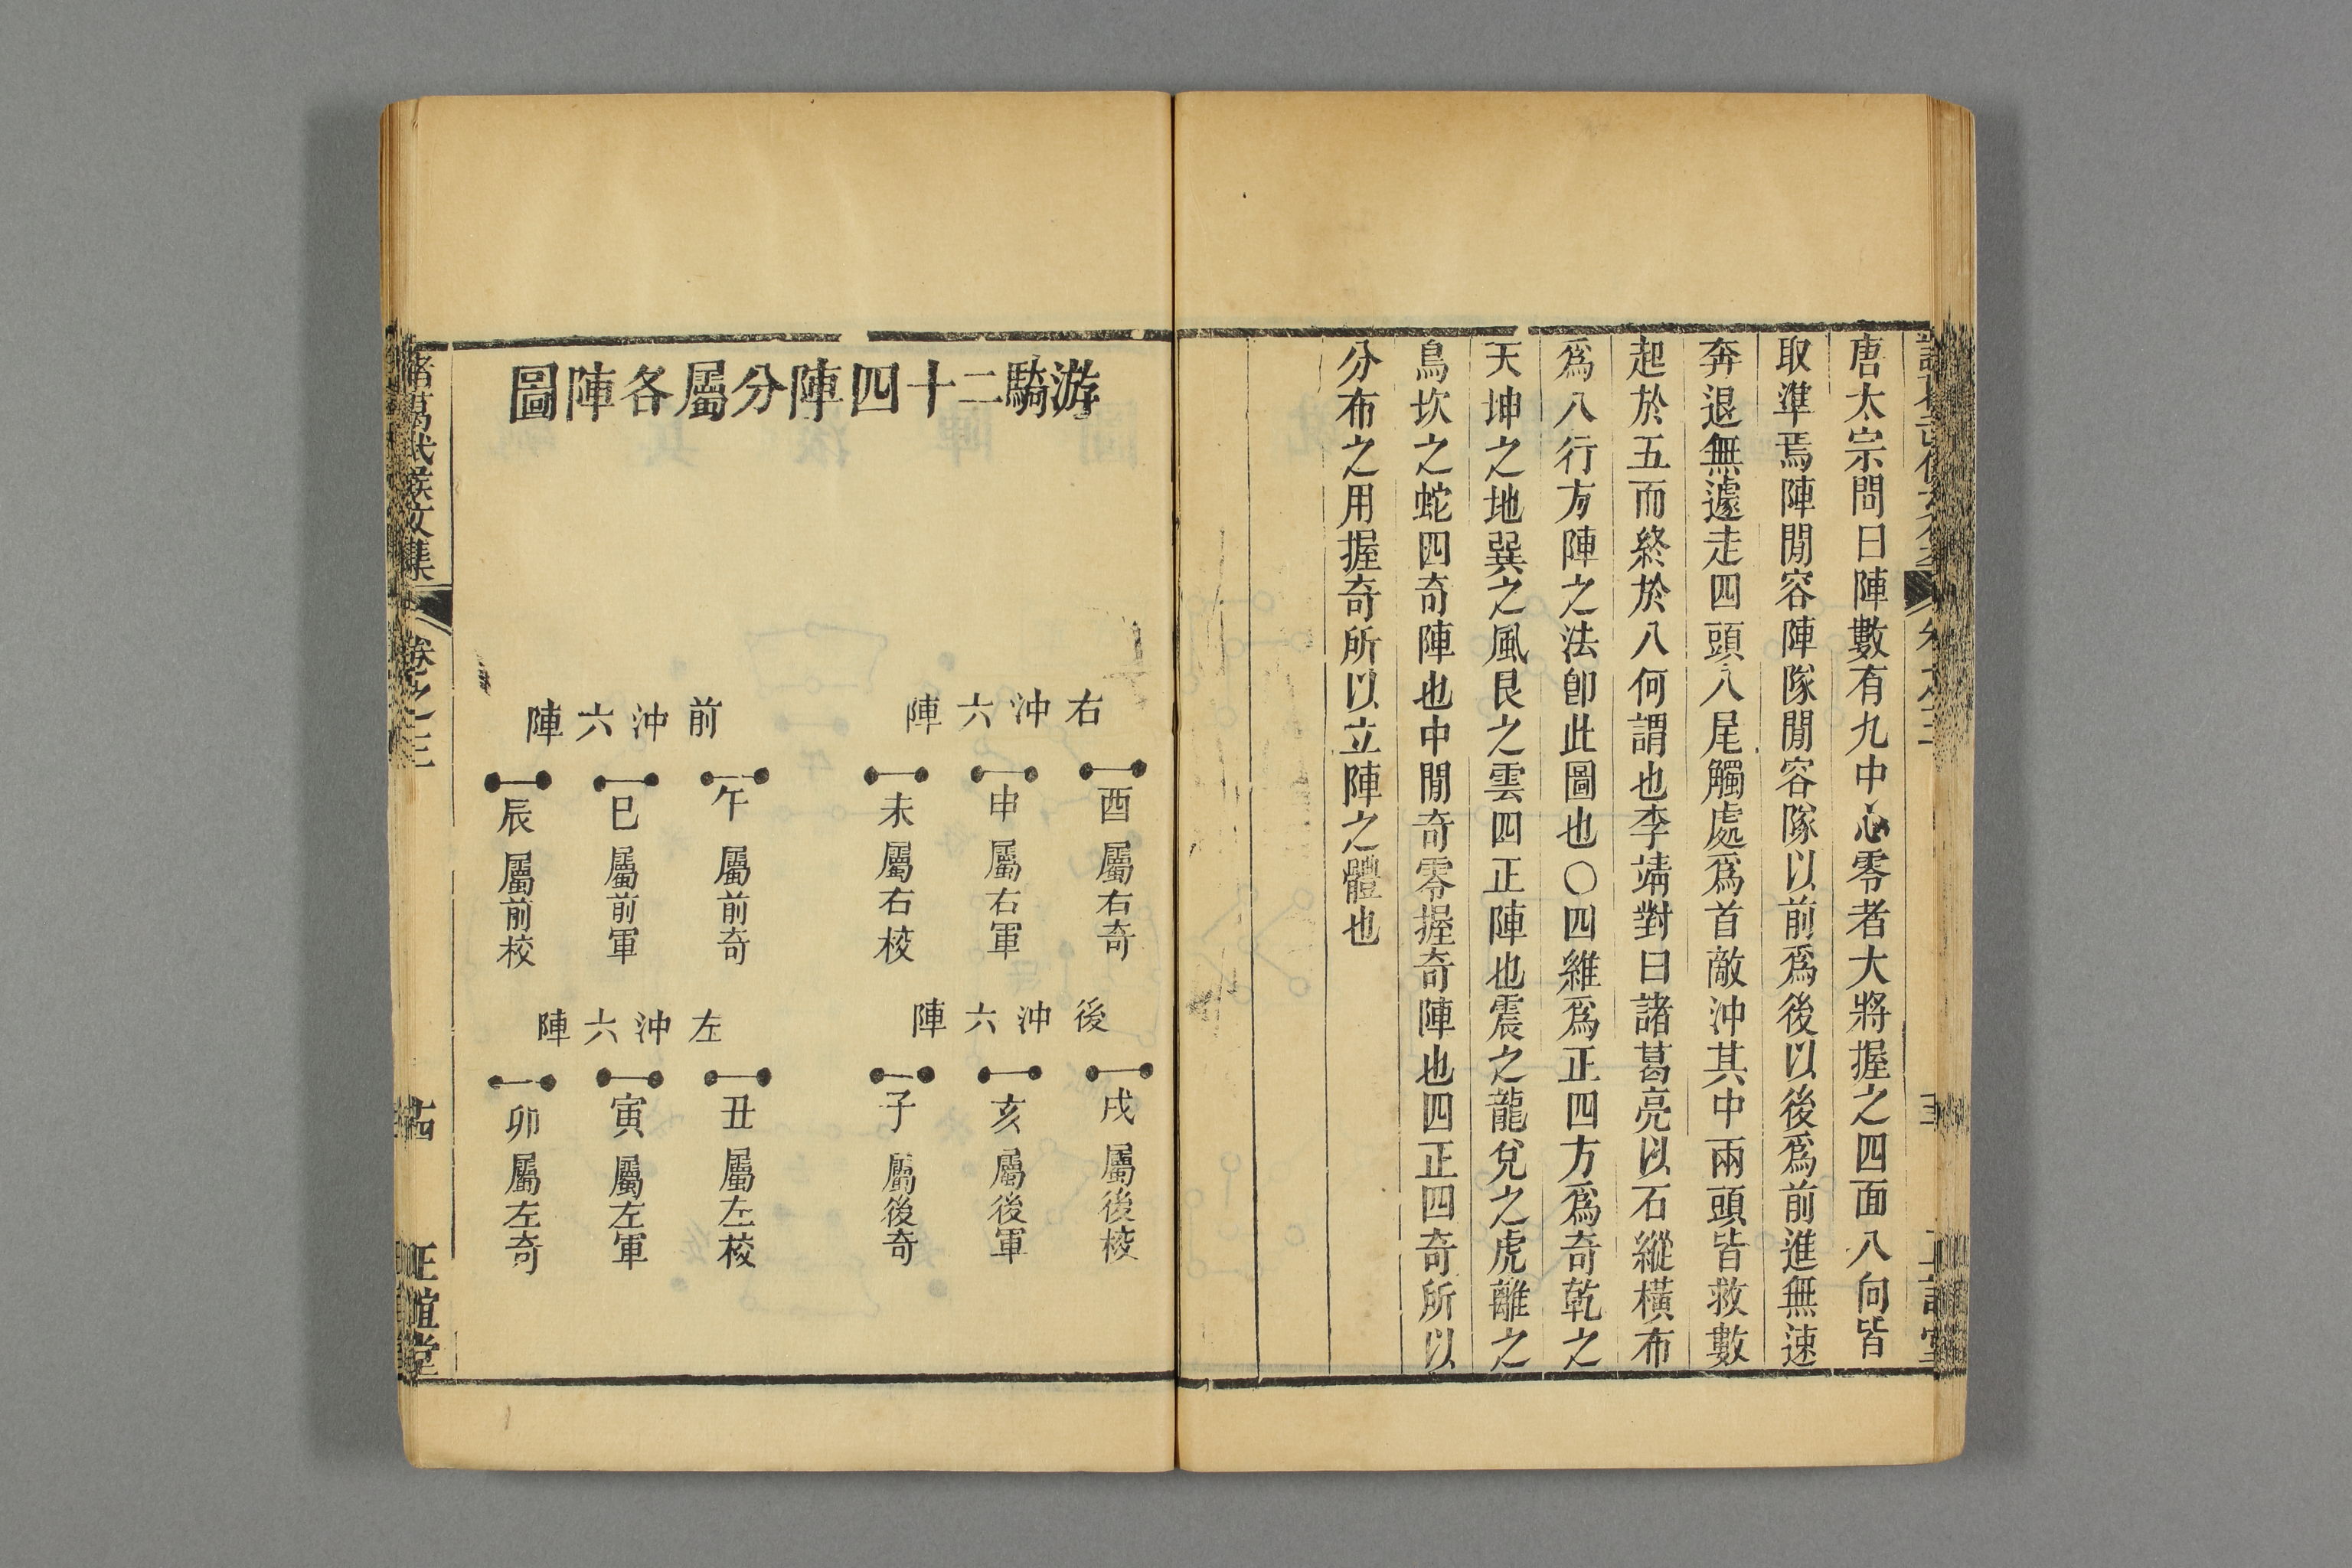 唐太宗問曰陣數有九中心零者大將握之四面八向皆
取準焉陣閒容陣隊閒容隊以前爲後以後爲前進無速
奔退無遽走四頭八尾觸處爲首敵沖其中兩頭皆救數
起於五而終於八何謂也李靖對曰諸葛亮以石縱橫布
爲八行方陣之法卽此圖也〇四維爲正四方爲奇乾之
天坤之地巽之風艮之雲四正陣也震之龍兌之虎離之
鳥坎之蛇四奇陣也中閒奇零握奇陣也四正四奇所以
分布之用握奇所以立陣之體也
游騎二十四陣分屬各陣圖
右沖六陣
酉屬右奇
申屬右軍
未屬右校
前沖六陣
午屬前奇
巳屬前軍
辰屬前校
後沖六陣
戌屬後校
亥屬後軍
子屬後奇
左沖六陣
丑屬左校
寅屬左軍
卯屬左奇
諸葛武侯文集
卷之三
正誼堂